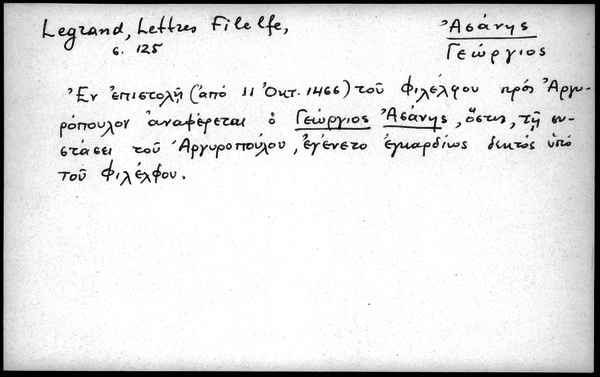 Legrand, Lettres Filelfe,
σ. 125
Ἀσάνης
Γεώργιος
Ἐν ἐπιστολῇ (ἀπό 11 Ὀκτ. 1466) τοῦ Φιλέλφου πρός Ἀργυ-
ρόπουλον ἀναφέρεται ὁ Γεώργιος Ἀσάνης, ὅστις, τῇ συ-
στάσει τοῦ Ἀργυροπούλου, ἐγένετο ἐγκαρδίως δεκτός ὑπό
τοῦ Φιλέλφου.